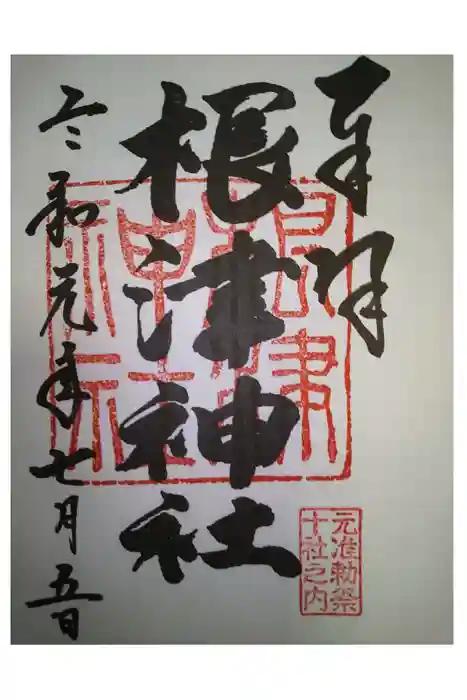 奉拝
根津神社
令和元年七月五日
根津神社
元准勅祭
十社之内